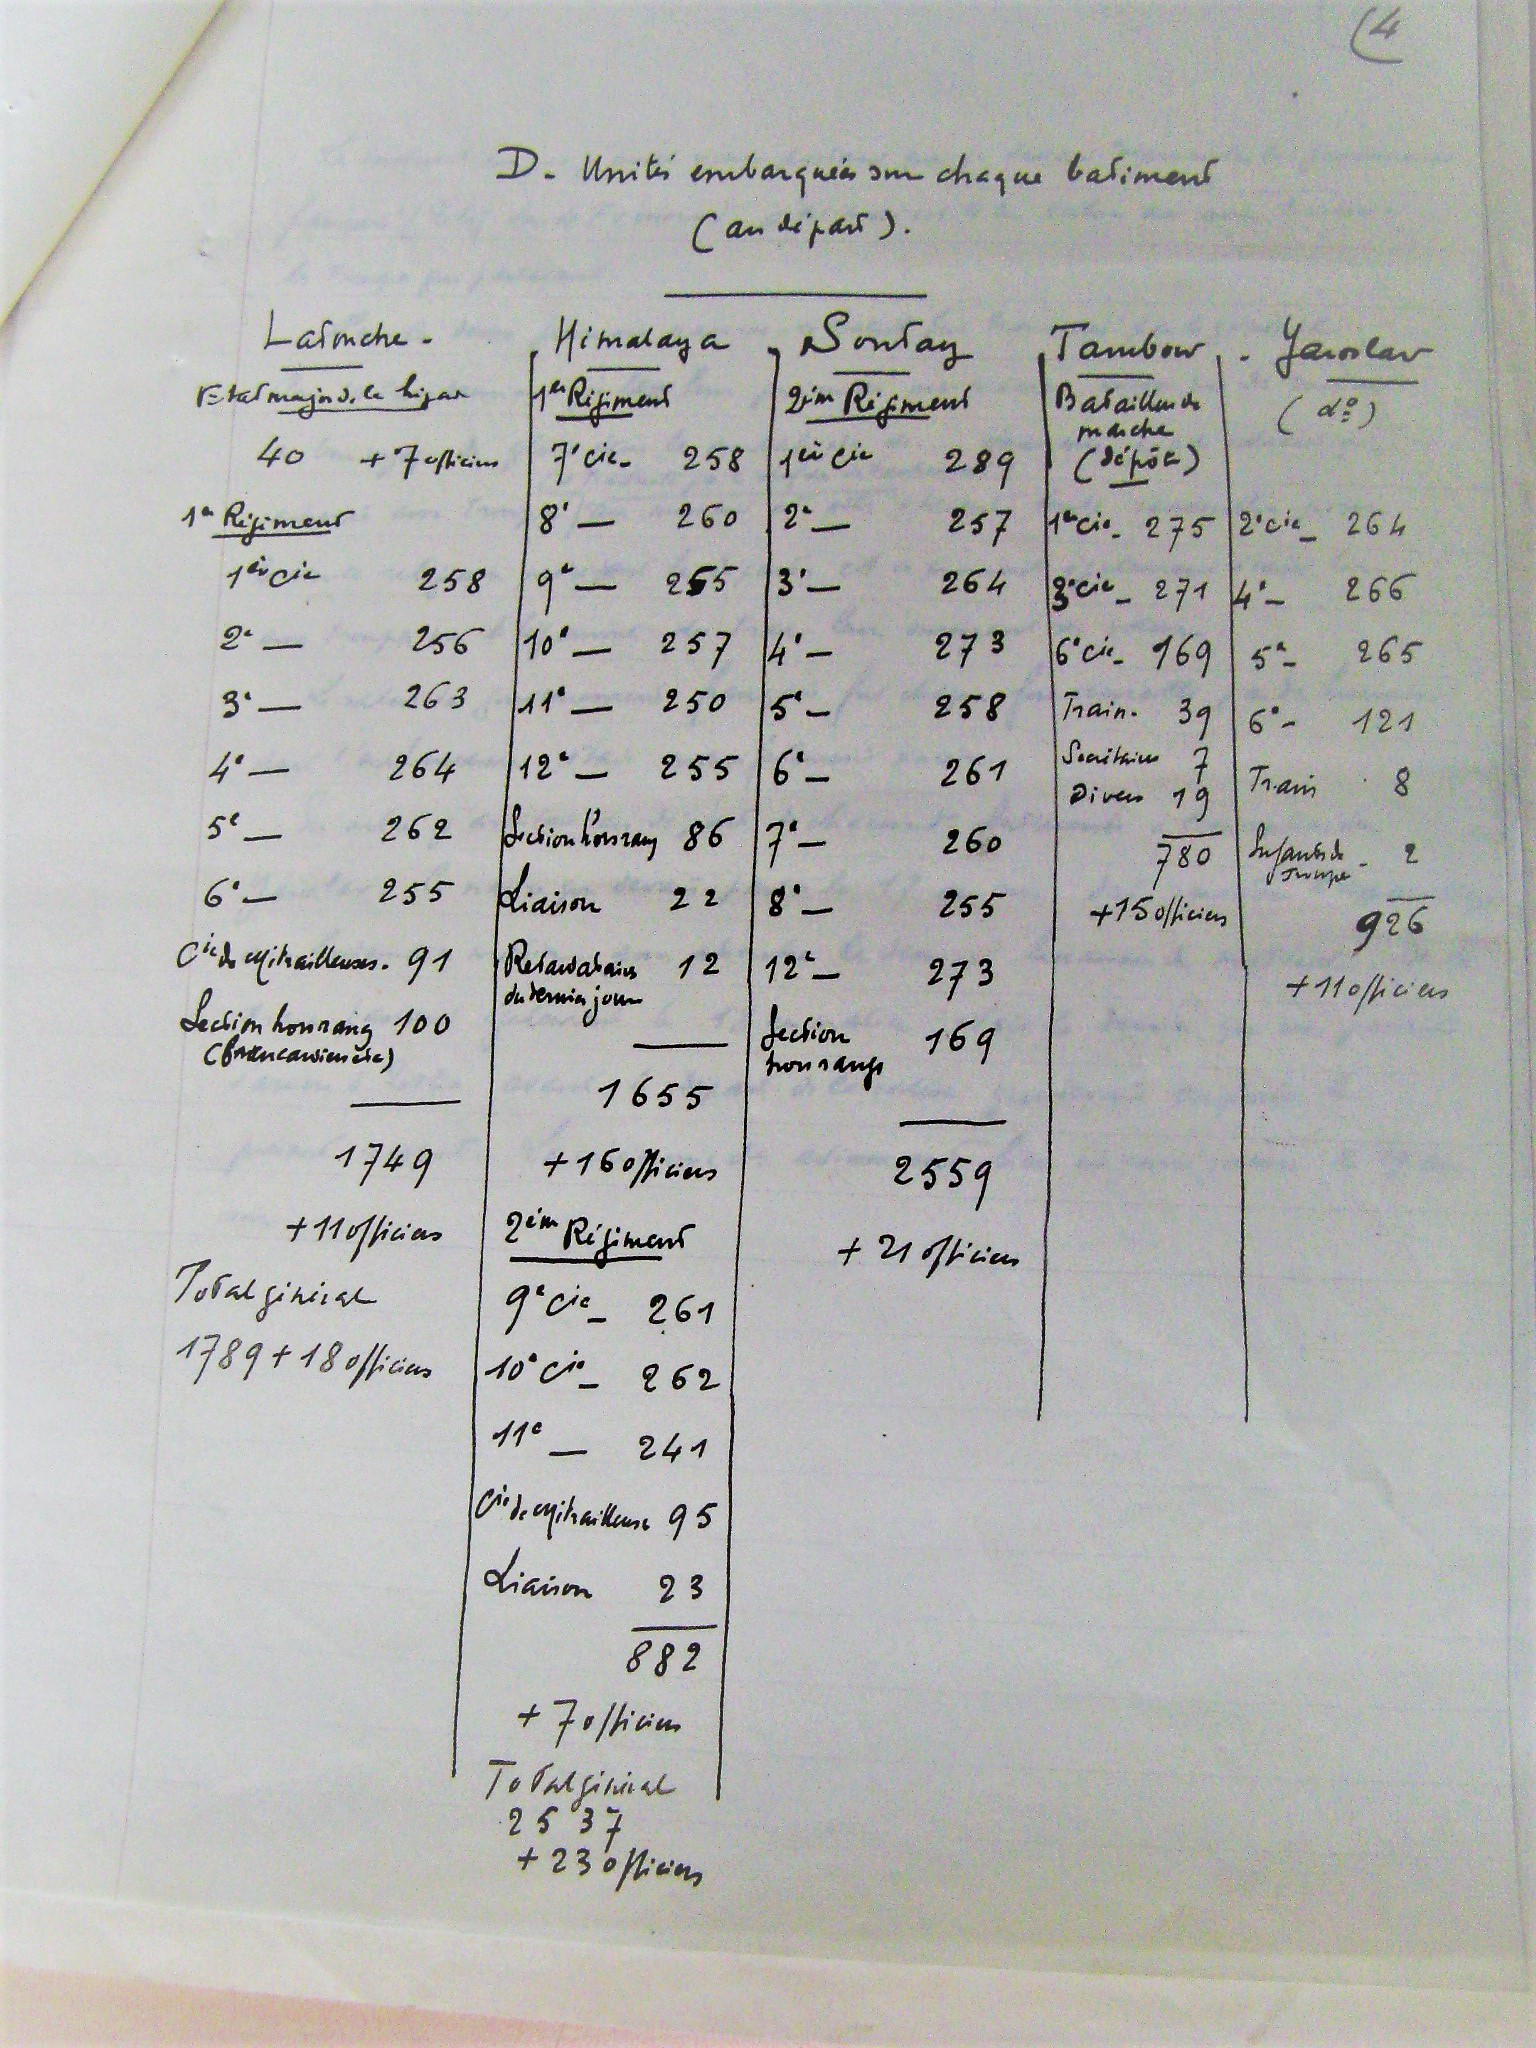 (4
D. Unités embarquées sur chaque batiment
(au départ).
Latouche.
Etat major de la brigade
40 + 7 officiers
1er Régiment
1ère Cie 258
2e — 256
3e — 263
4e — 264
5e — 262
6e — 255
Cie de Mitrailleuses. 91
Section hors rang 100
(brancardiers)
1749
+ 11 officiers
Total général
1789 + 18 officiers
Himalaya
1er Régiment
7e Cie - 258
8e — 260
9e — 255
10e — 257
11e — 250
12e — 255
Section hors rang 86
Liaison 22
Retardataires 12
du dernier jour
1655
+ 16 officiers
2ème Régiment
9e Cie - 261
10e Cie - 262
11e — 241
Cie de Mitrailleuse 95
Liaison 23
882
+ 7 officiers
Total général
2537
+ 23 officiers
Sontay
2ème Régiment
1ère Cie 289
2e — 257
3e — 264
4e — 273
5e — 258
6e — 261
7e — 260
8e — 255
12e — 273
Section 169
hors rangs
2559
+ 21 officiers
Tambow
Bataillon de
marche
(dépôt)
1ère Cie - 275
3e Cie - 271
6e Cie - 169
Train. 39
Secrétaires 7
Divers 19
780
+ 15 officiers
Yaroslav
(do)
2e Cie - 264
4e - 266
5e - 265
6e - 121
Train 8
Enfants de - 2
troupe
926
+ 11 officiers